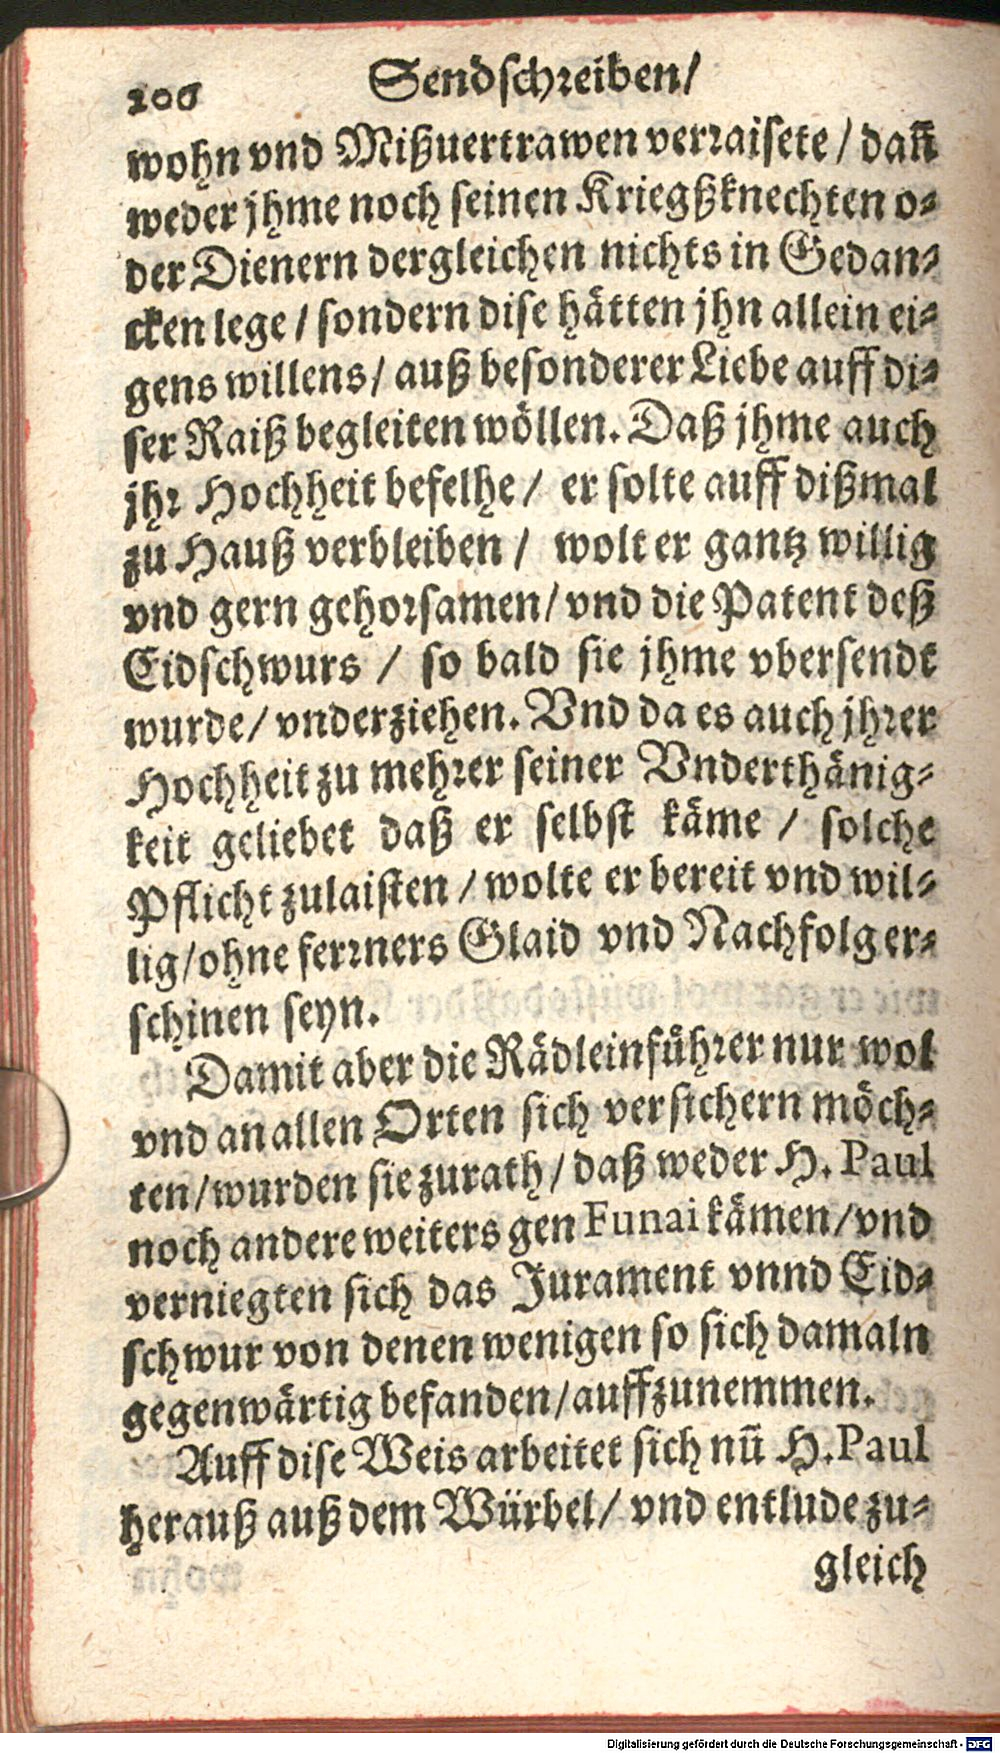 206 Sendschreiben/
wohn vnd Mißuertrawen verraisete / dañ
weder jhme noch seinen Kriegßknechten o⸗
der Dienern dergleichen nichts in Gedan⸗
cken lege / sondern dise hätten jhn allein ei⸗
gens willens / auß besonderer Liebe auff di⸗
ser Raiß begleiten wöllen. Daß jhme auch
jhr Hochheit befelhe / er solte auff dißmal
zu Hauß verbleiben / wolt er gantz willig
vnd gern gehorsamen / vnd die Patent deß
Eidschwurs / so bald sie jhme vbersendt
wurde / vnderziehen. Vnd da es auch jhrer
Hochheit zu mehrer seiner Vnderthänig⸗
keit geliebet daß er selbst käme / solche
Pflicht zulaisten / wolte er bereit vnd wil⸗
lig / ohne ferrners Glaid vnd Nachfolg er⸗
schinen seyn.
Damit aber die Rädleinführer nur wol
vnd an allen Orten sich versichern möch⸗
ten / wurden sie zurath / daß weder H. Paul
noch andere weiters gen Funai kämen / vnd
verniegten sich das Jurament vnnd Eid⸗
schwur von denen wenigen so sich damaln
gegenwärtig befanden / auffzunemmen.
Auff dise Weis arbeitet sich nũ H. Paul
herauß auß dem Würbel / vnd entlude zu⸗
gleich
Digitalisierung gefördert durch die Deutsche Forschungsgemeinschaft - DFG